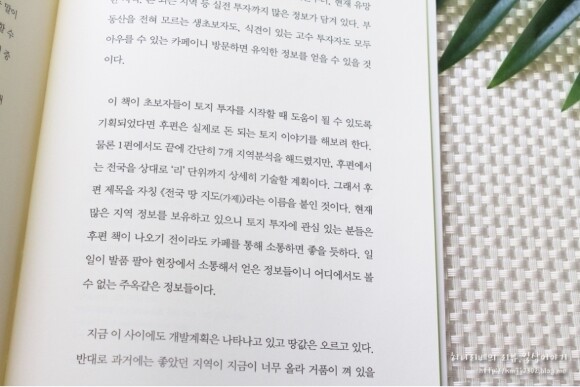 등 실전 투자까지 많은 정보가 담겨 있다. 부
동산을 전혀 모르는 생초보자도, 식견이 있는 고수 투자자도 모두
아우를 수 있는 카페이니 방문하면 유익한 정보를 얻을 수 있을 것
이다.
이 책이 초보자들이 토지 투자를 시작할 때 도움이 될 수 있도록
기획되었다면 후편은 실제로 돈 되는 토지 이야기를 해보려 한다.
물론 1편에서도 끝에 간단히 7개 지역분석을 해드렸지만, 후편에서
는 전국을 상대로 '리' 단위까지 상세히 기술할 계획이다. 그래서 후
편 제목을 자칭 《전국 땅 지도(가제)》라는 이름을 붙인 것이다. 현재
많은 지역 정보를 보유하고 있으니 토지 투자에 관심 있는 분들은
후편 책이 나오기 전이라도 카페를 통해 소통하면 좋을 듯하다. 일
일이 발품 팔아 현장에서 소통해서 얻은 정보들이니 어디에서도 볼
수 없는 주옥같은 정보들이다.
지금 이 사이에도 개발계획은 나타나고 있고 땅값은 오르고 있다.
반대로 과거에는 좋았던 지역이 지금이 너무 올라 거품이 껴 있을